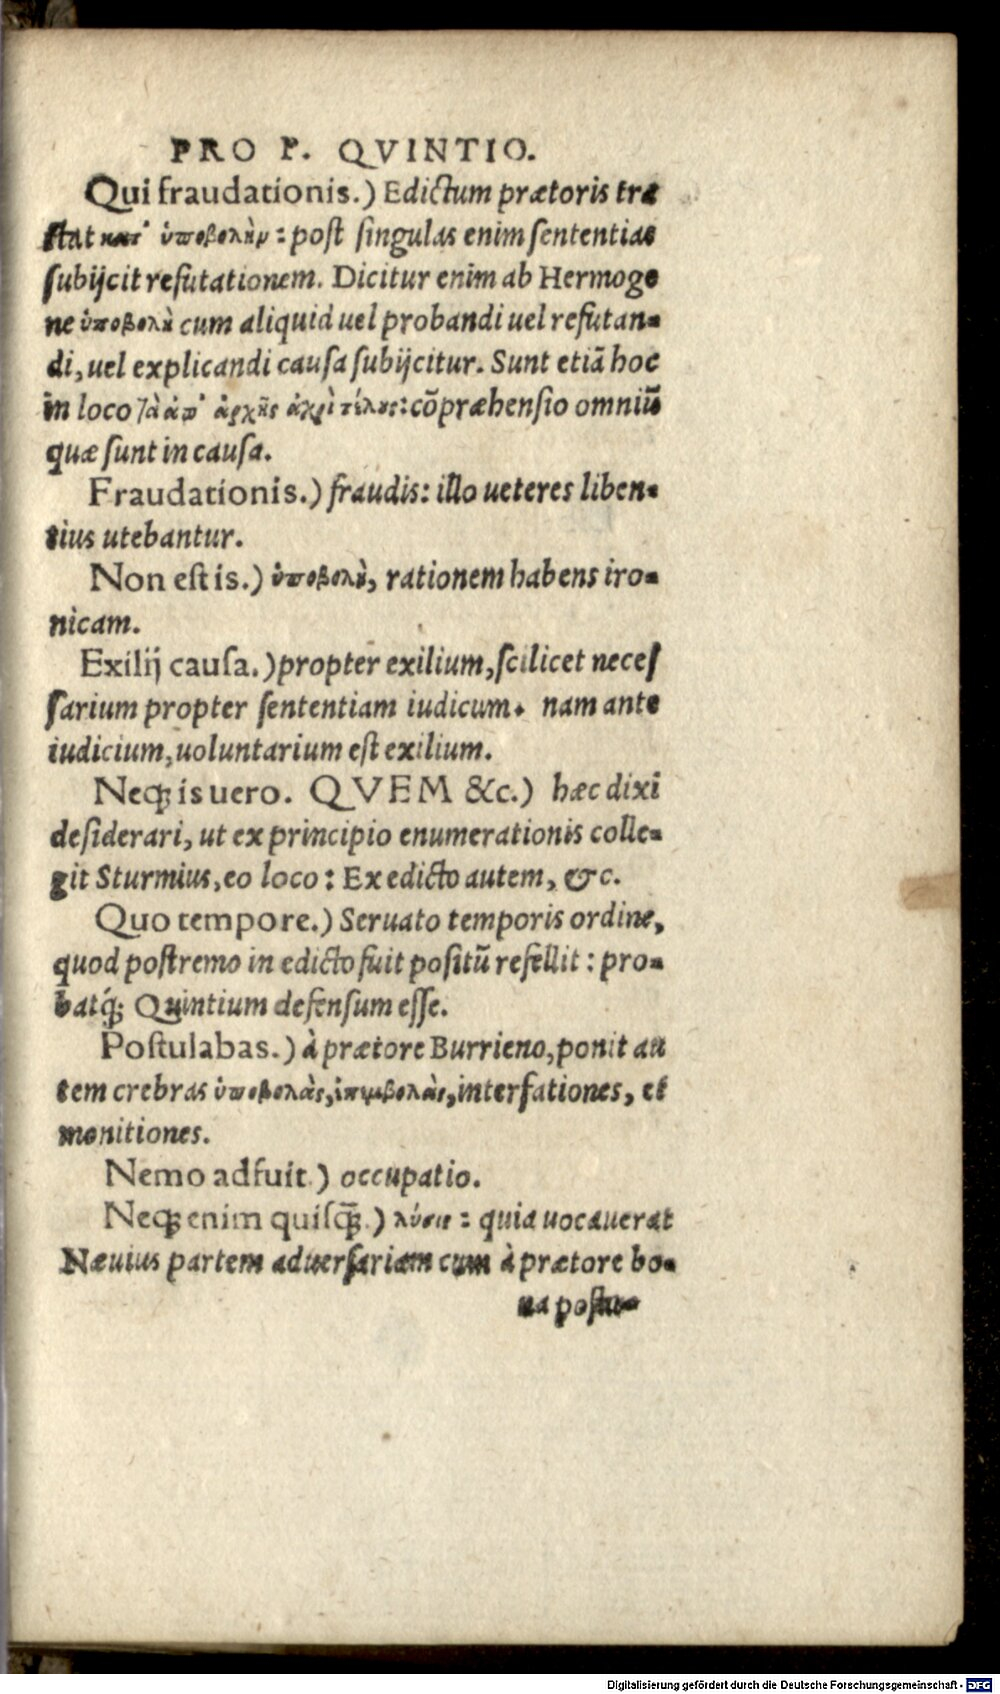 PRO P. QVINTIO.
Qui fraudationis.) Edictum prætoris tra
ctat κατ' ὑποβολὴν: post singulas enim sententias
subijcit refutationem. Dicitur enim ab Hermoge
ne ὑποβολὴ cum aliquid uel probandi uel refutan-
di, uel explicandi causa subijcitur. Sunt etiā hoc
in loco τὰ ἀπ' ἀρχῆς ἀχρὶ τέλους: cōpræhensio omniū
quæ sunt in causa.
Fraudationis.) fraudis: illo ueteres liben-
tius utebantur.
Non est is.) ὑποβολὴ, rationem habens iro-
nicam.
Exilij causa.) propter exilium, scilicet neces
sarium propter sententiam iudicum. nam ante
iudicium, uoluntarium est exilium.
Neqꝫ is uero. QVEM &c.) hæc dixi
desiderari, ut ex principio enumerationis colle-
git Sturmius, eo loco: Ex edicto autem, &c.
Quo tempore.) Seruato temporis ordine,
quod postremo in edicto fuit positū refellit: pro-
batq́ꝫ Quintium defensum esse.
Postulabas.) à prætore Burrieno, ponit au
tem crebras ὑποβολὰς, ἐπεμβολὰς, interfationes, et
monitiones.
Nemo adfuit.) occupatio.
Neqꝫ enim quisq̄ꝫ.) λύσις: quia uocauerat
Næuius partem aduersariam cum à prætore bo-
na postu-
Digitalisierung gefördert durch die Deutsche Forschungsgemeinschaft - DFG